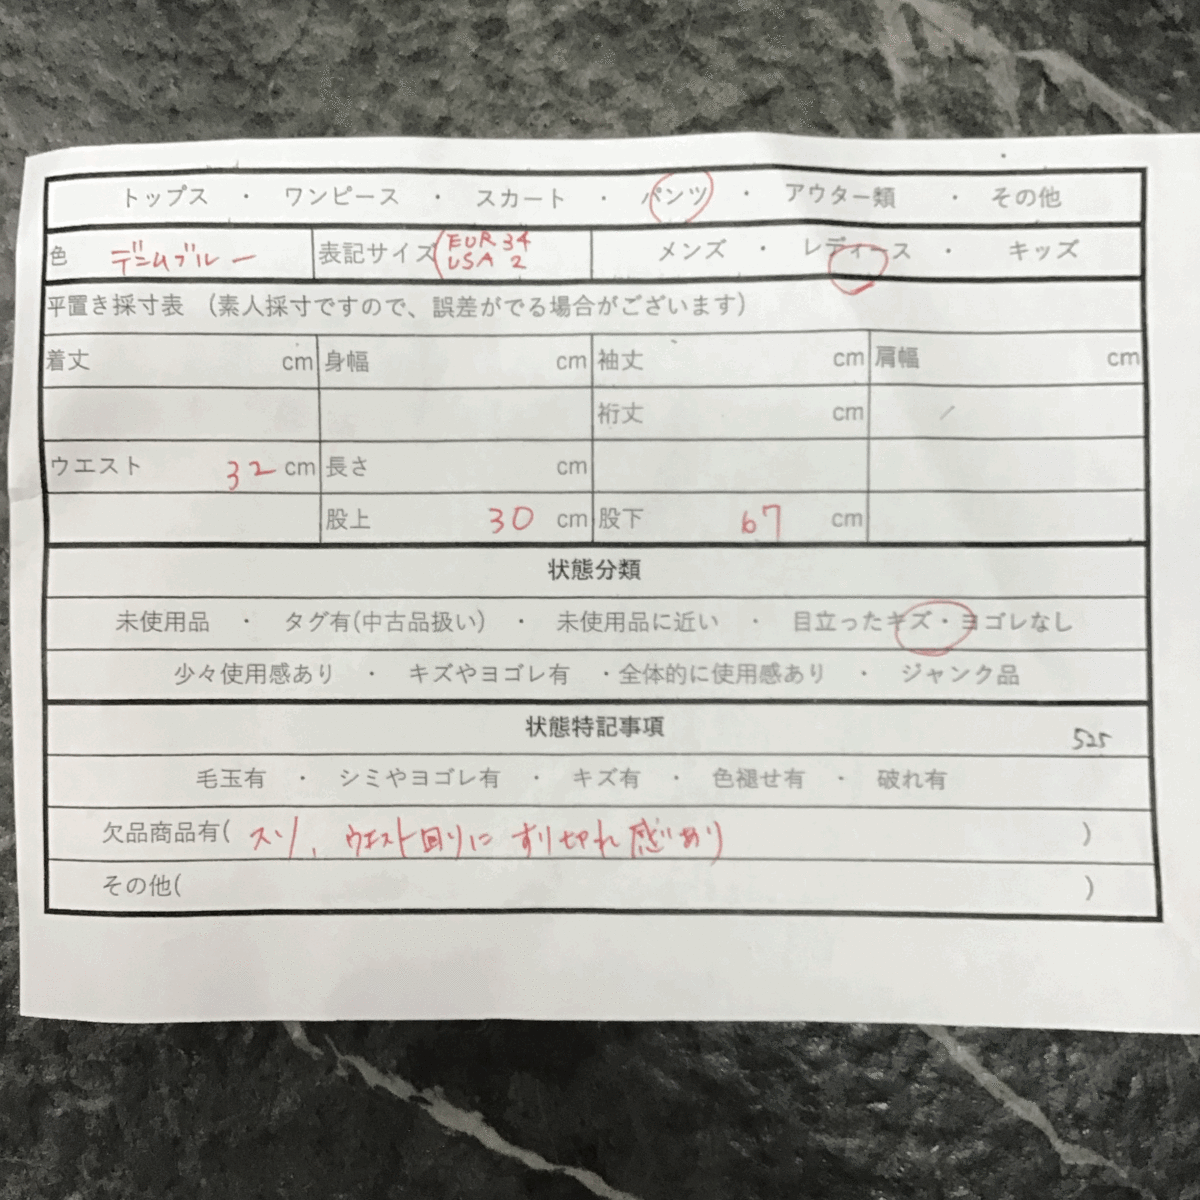 トップス ・ ワンピース ・ スカート ・ パンツ ・ アウター類 ・ その他
色 デニムブルー 表記サイズ( EUR 34 メンズ ・ レディース ・ キッズ
USA 2
平置き採寸表 (素人採寸ですので、誤差がでる場合がございます)
着丈 cm 身幅 cm 袖丈 cm 肩幅 cm
裄丈 cm
ウエスト 32 cm 長さ cm
股上 30 cm 股下 67 cm
状態分類
未使用品 ・ タグ有(中古品扱い) ・ 未使用品に近い ・ 目立ったキズ・ヨゴレなし
少々使用感あり ・ キズやヨゴレ有 ・全体的に使用感あり ・ ジャンク品
状態特記事項
525
毛玉有 ・ シミやヨゴレ有 ・ キズ有 ・ 色褪せ有 ・ 破れ有
欠品商品有( スソ、ウエスト回りに すり切れ感あり )
その他( )